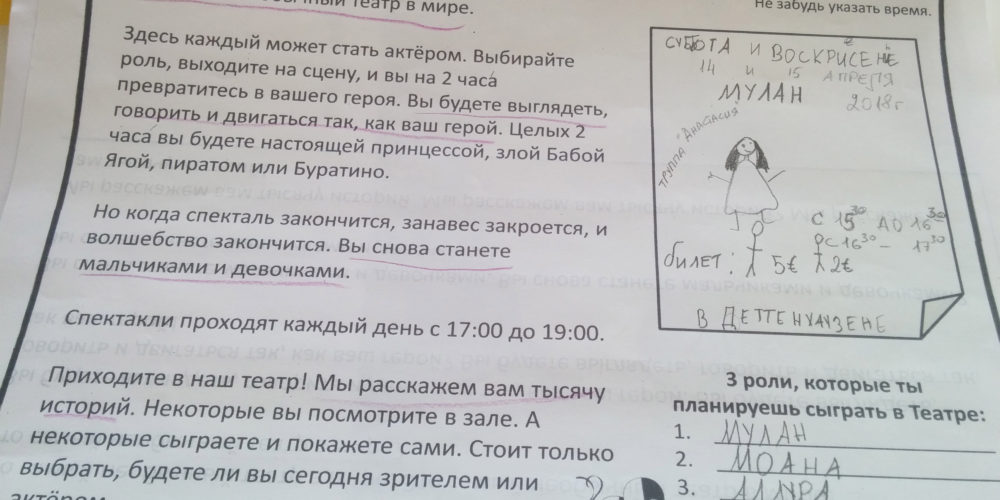 театр в мире.
Здесь каждый может стать актёром. Выбирайте
роль, выходите на сцену, и вы на 2 часа́
превратитесь в вашего героя. Вы будете выглядеть,
говорить и двигаться так, как ваш герой. Целых 2
часа́ вы будете настоящей принцессой, злой Бабой
Ягой, пиратом или Буратино.
Но когда спекталь закончится, занавес закроется, и
волшебство закончится. Вы снова станете
мальчиками и девочками.
Спектакли проходят каждый день с 17:00 до 19:00.
Приходите в наш театр! Мы расскажем вам тысячу
историй. Некоторые вы посмотрите в зале. А
некоторые сыграете и покажете сами. Стоит только
выбрать, будете ли вы сегодня зрителем или
актёром
Не забудь указать время.
СУББОТА И
14 и 15 АПРЕЛЯ
МУЛАН 2018г
ТРУППА "АНАСТАСИЯ"
С 15 30 ДО 16 30
С 16 30 - 17 30
билет: 5€ 2€
В ДЕТТЕНХАУЗЕНЕ
3 роли, которые ты
планируешь сыграть в Театре:
1. МУЛАН
2. МОАНА
3.